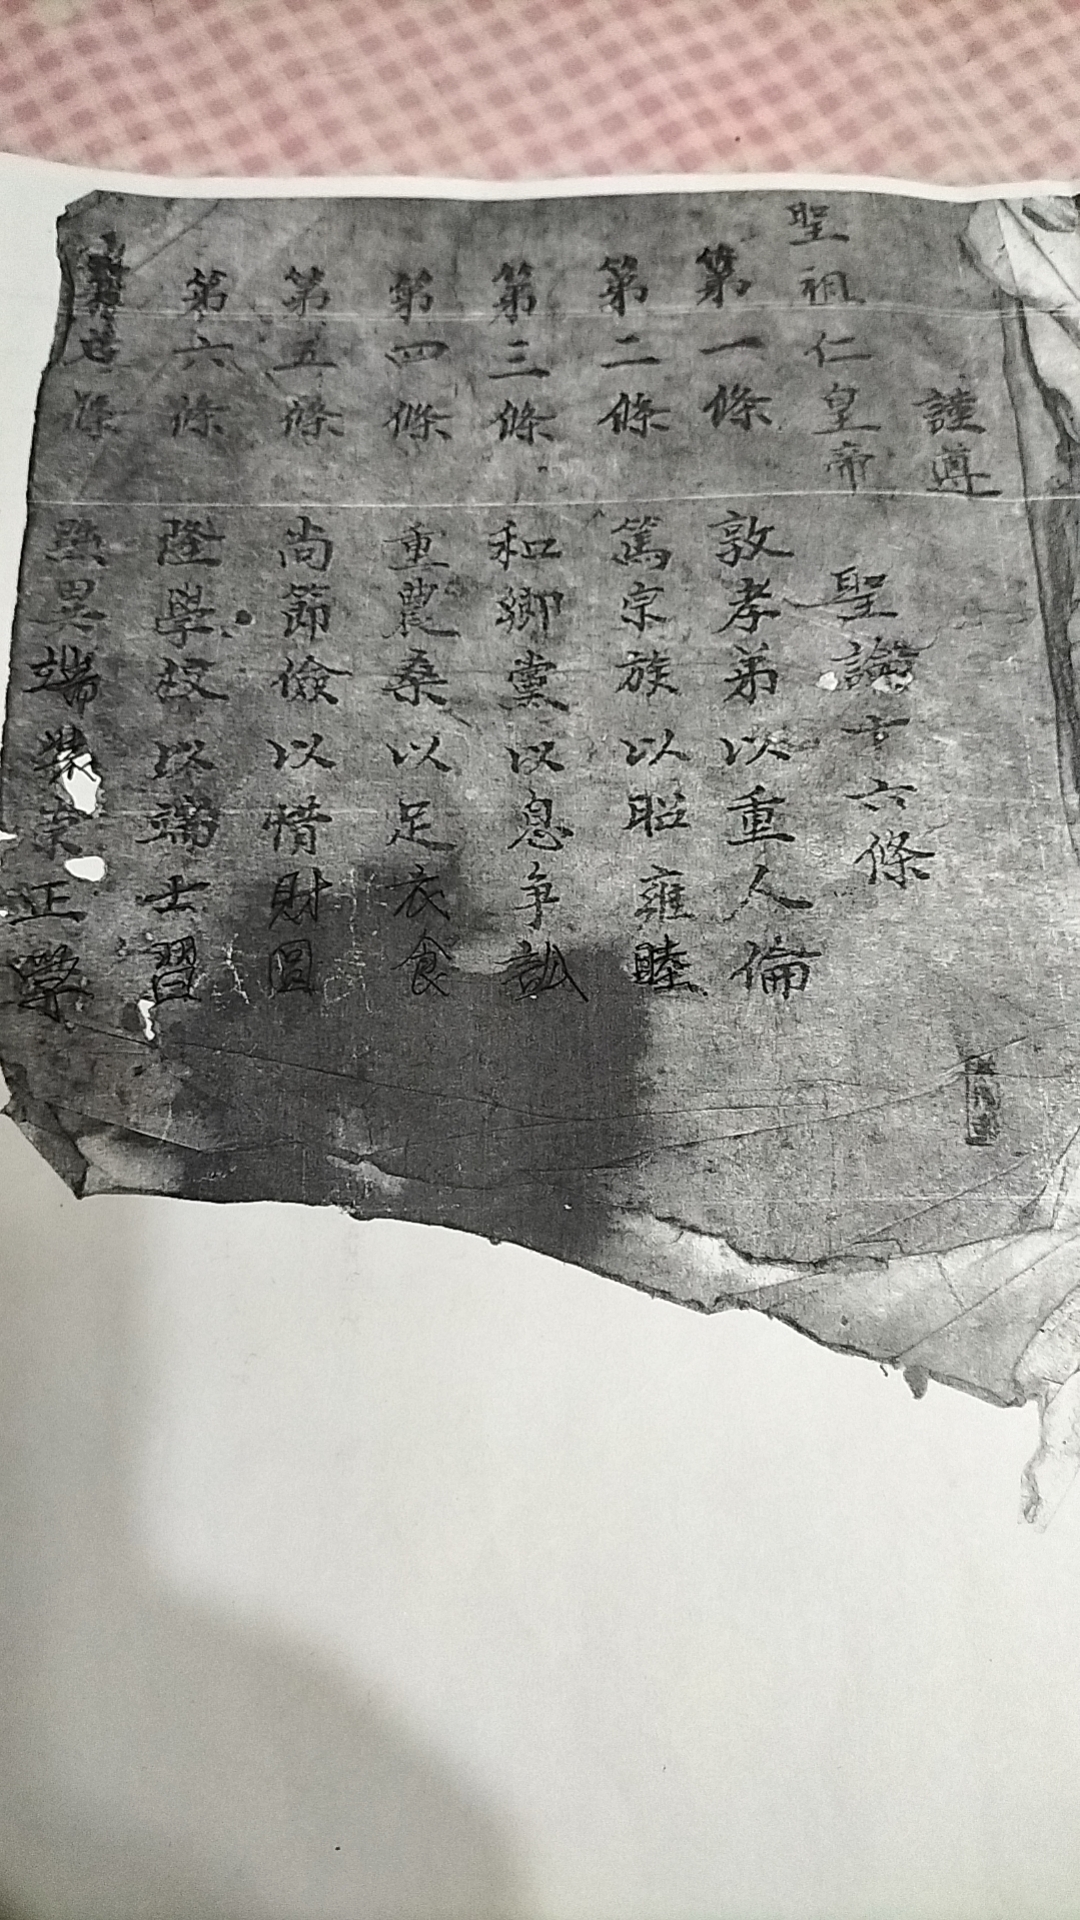 謹遵
聖祖仁皇帝
聖諭十六條
第一條 敦孝弟以重人倫
第二條 篤宗族以昭雍睦
第三條 和鄉黨以息争訟
第四條 重農桑以足衣食
第五條 尚節儉以惜財
第六條 隆學校以端士習
第七條 異端以崇正學